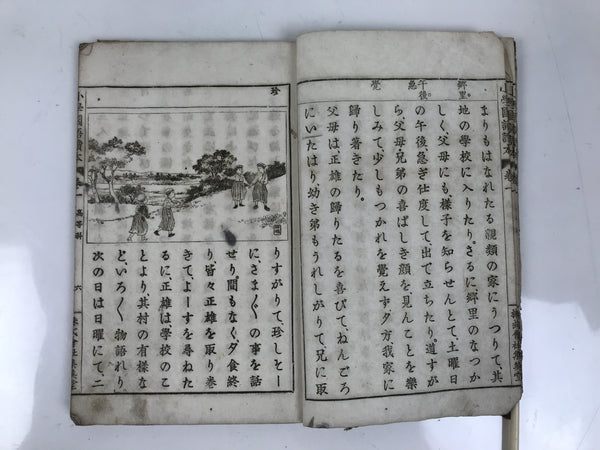 郷里。
午後。
急
覺
まりもはなれたる親類の家にうつりて、其
地の學校に入りたり。さるに郷里のなつか
しく父母にも、樣子を知らせんとて、土曜日
の午後急ぎ仕度して、出で立ちたり。道すが
ら、父母、兄弟の喜ばしき顔を見んことを樂
しみて、少しもつかれを覺えず、夕方、我家に
歸り着きたり。
父母は、正雄の歸りたるを喜びて、ねんごろ
にいたはり、幼き弟も、うれしがりて、兄に取
珍
りすがりて、珍しそー
に、さま〲の事を話
せり。間もなく、夕食終
り、皆々正雄を取り卷
きて、よーすを尋ねた
るに、正雄は、學校のこ
とより、其村の有樣な
ど、いろ〱物語れり。
次の日は日曜にて、二
小學國語讀本
高等科
六